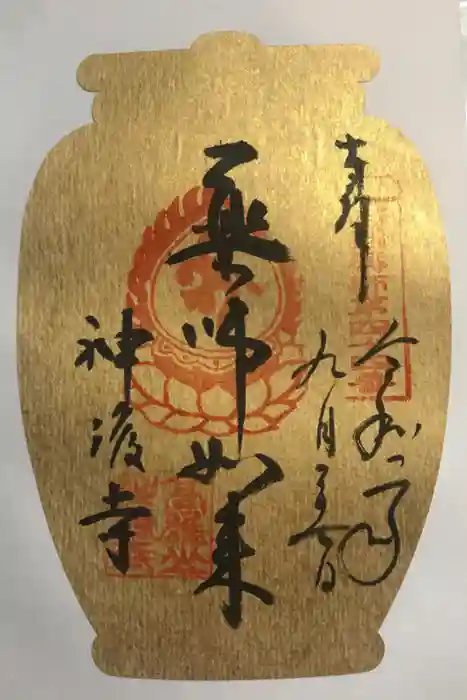 奉拝
令和二年
九月
薬師如来
神護寺